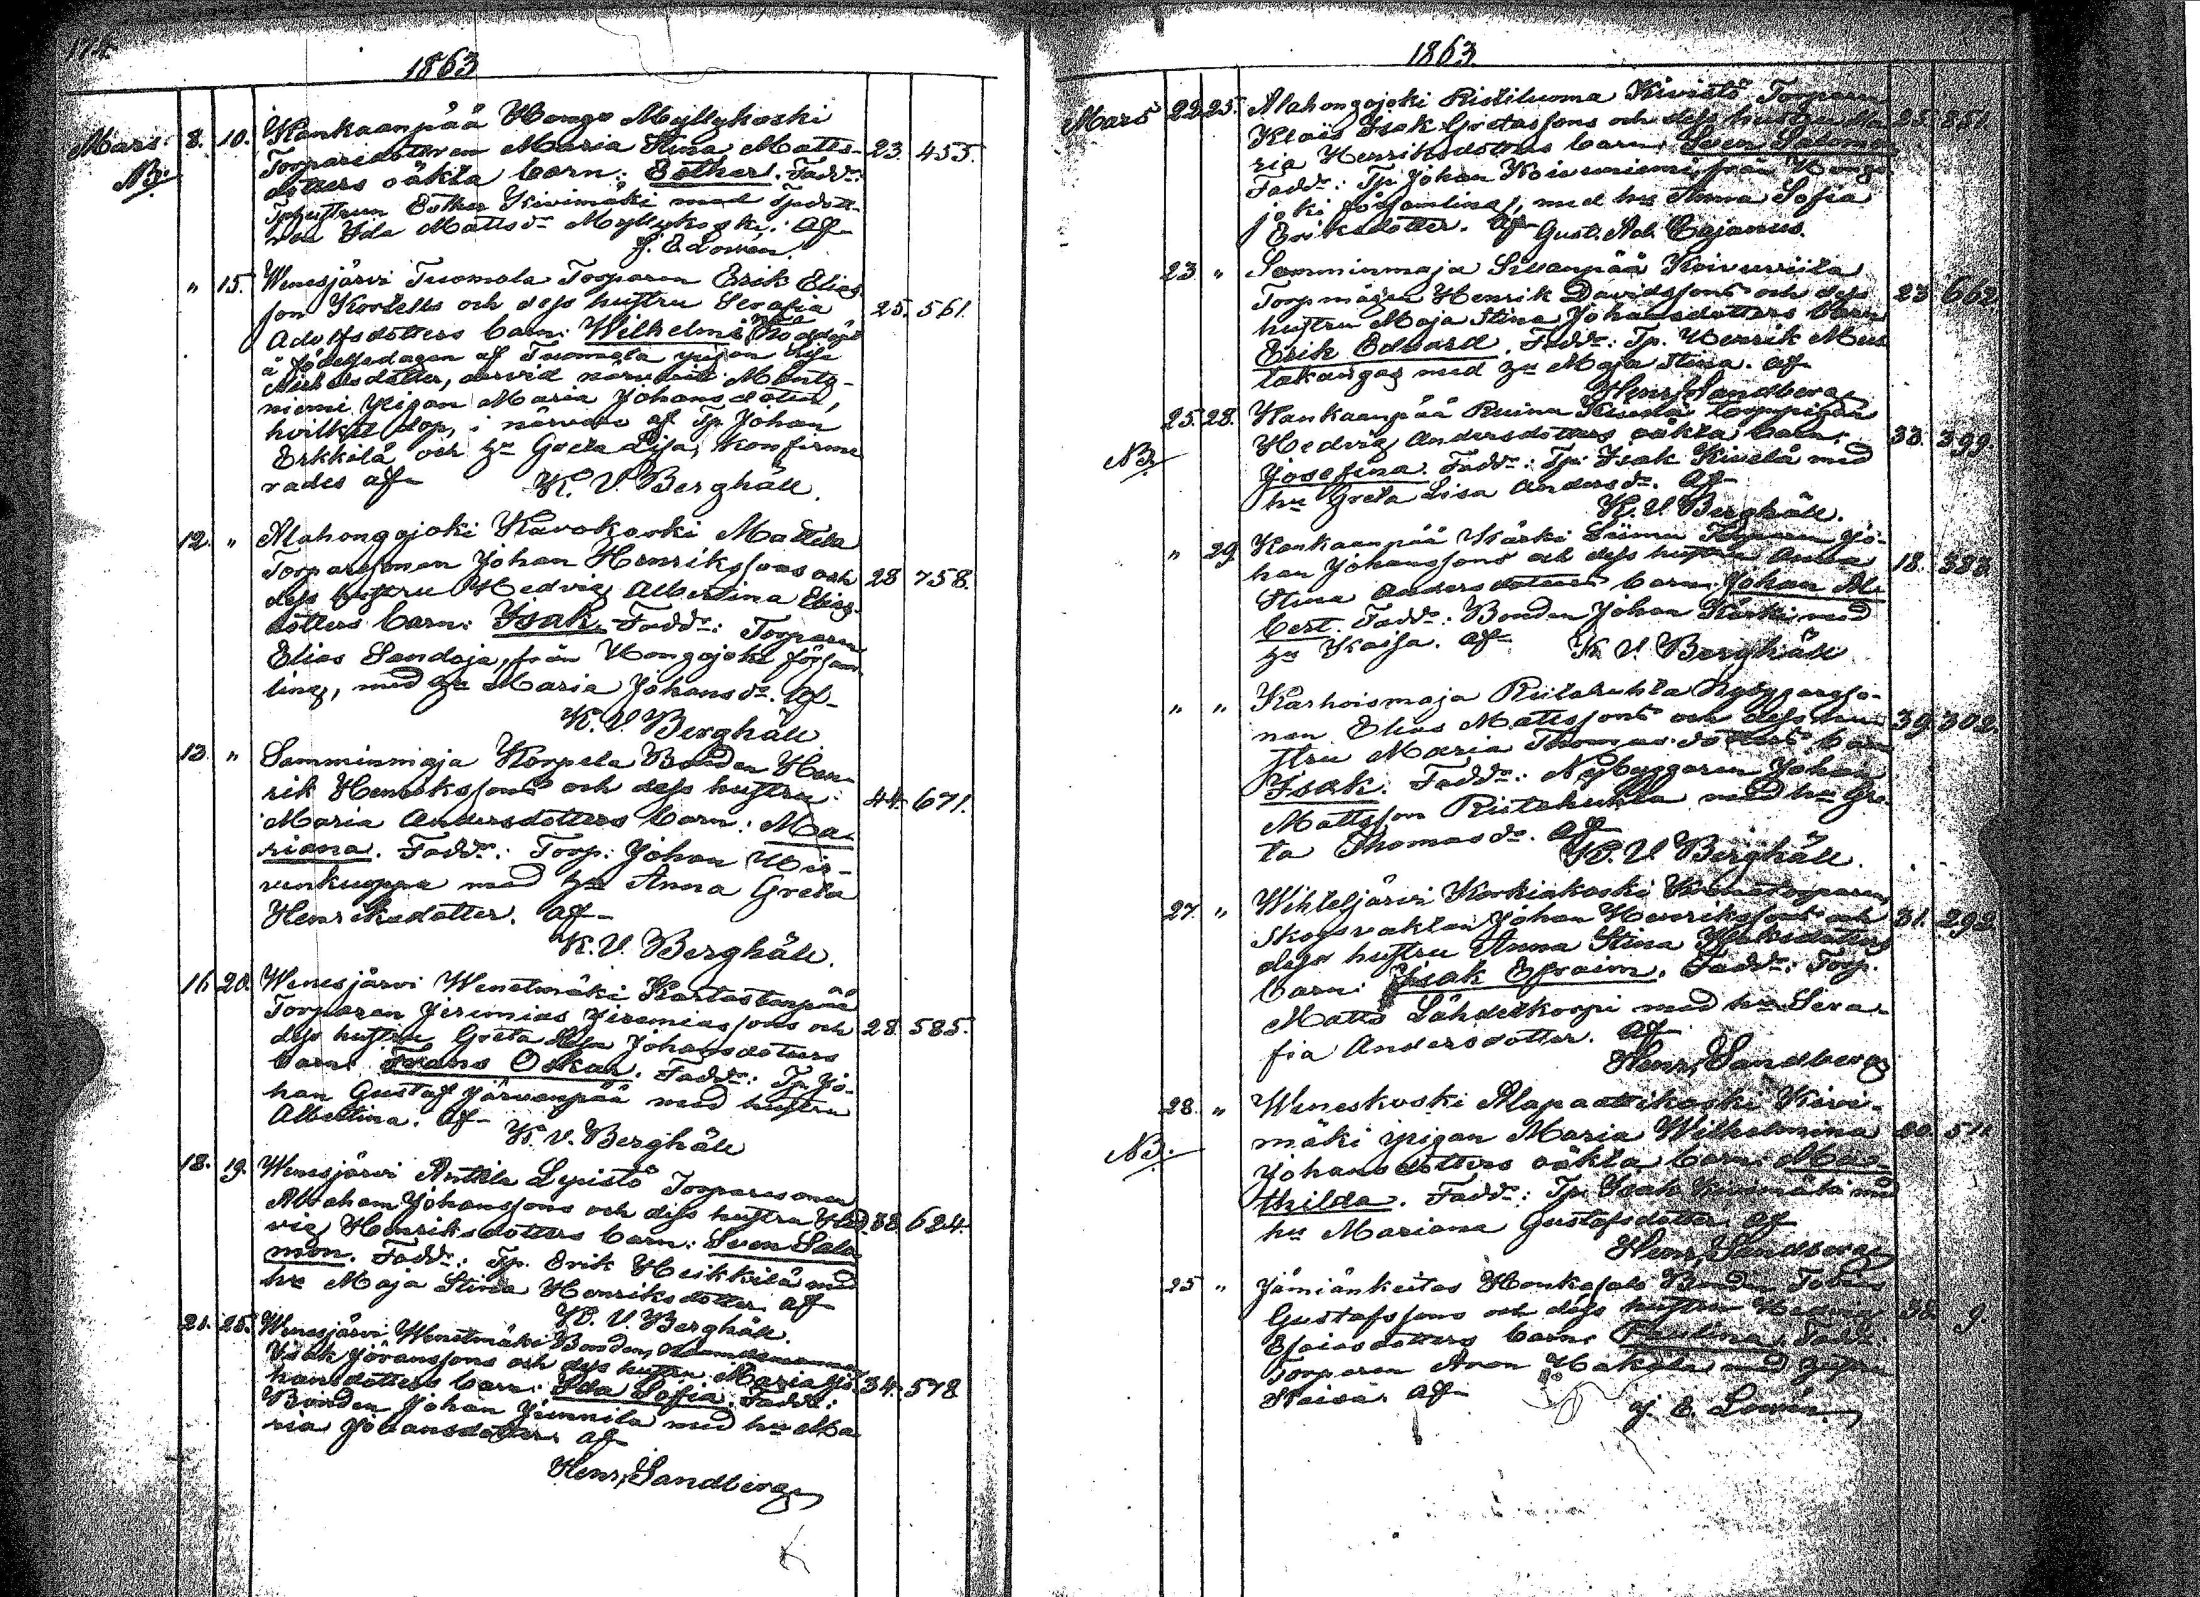 174
1863
Mars. 8. 10. Kankaanpää Hongo Myllykoski
Torparedotteren Maria Stina Matts-
dotters oäkta barn: Esther. Fadd:r: 23. 455.
NB. Tphustrun Esther Kivimäki med Tpdott-
ren Ida Mattsd:r Myllykoski. Af
J. E. Lowén.
" 15. Wenesjärvi Tuomola Torparen Erik Elias-
son Kortells och dess hustru Serafia 25. 561.
Adolfsdotters barn: Wilhelmina, Nöddöpt
å födelsedagen af Tuomola pigan Lisa
Michelsdotter, varvid närvarit Mänty-
niemi pigan Maria Johansdotter,
hvilket dop, i närvaro af Tp. Johan
Erkkilä och h:u Greta Lisa, konfirme-
rades af
K. V. Berghäll.
12. " Alahongojoki Karokoski Mattila
Torparesonen Johan Henrikssons och 28 758.
dess hustru Hedvig Albertina Elias-
dotters barn: Isak. Fadd:r: Torparen
Elias Sandoja, från Hongojoki försam-
ling, med h:u Maria Johansd:r. Af
K. V. Berghäll
13. " Samminmaja Korpela Bonden Hen-
rik Henrikssons och dess hustru 44. 671.
Maria Andersdotters barn: Ma-
riana. Fadd:r: Torp. Johan Wir-
runkuoppa med h:u Anna Greta
Henriksdotter. Af
K. V. Berghäll.
16 20. Wenesjärvi Wenetmäki Kartastenpää
Torparen Jeremias Jeremiassons och 28. 585.
dess hustru Greta Lisa Johansdotters
barn: Frans Oskar. Fadd:r: Tp. Jo-
han Gustaf Järvenpää med hustru
Albertina. Af
K. V. Berghäll
18. 19. Wenesjärvi Anttila Lepistö Torparesonen
Abraham Johanssons och dess hustru Hed- 38. 624.
vig Henriksdotters barn: Sven Salo-
mon. Fadd:r: Tp. Erik Heikkilä med
h:u Maja Stina Henriksdotter. Af
K. V. Berghäll.
21. 25. Wenesjärvi Wenetmäki Bonden, Nämndemannen
Isak Jöranssons och dess hustru Maria Jo-
hansdotters barn: Ida Sofia. Fadd:r: 34. 578
Bonden Johan Junnila med h:u Ma-
ria Johansdotter. Af
Henr. Sandberg
1863
Mars 22. 25. Alahongojoki Ristiluoma Kivistö Torparen
Klais Isak Gretassons och dess hustru Ma- 25. 851.
ria Henriksdotters barn: Sven Salomon
Fadd:r: Tp. Johan Koivuniemi, från Hongo-
joki församling, med h:u Anna Sofia
Eriksdotter. Af Gust. Ad. Cajanus.
23 " Samminmaja Sivenpää Koivuviita
Torpmågen Henrik Davidssons och dess 23 662.
hustru Maja Stina Johansdotters barn
Erik Edvard. Fadd:r: Tp. Henrik Mus-
takangas med h:u Maja Stina. Af
Henr. Sandberg
25. 28. Kankaanpää Ruina torppigan
Hedvig Andersdotters oäkta barn: 33. 399.
NB. Josefina. Fadd:r: Tp. Isak Kivelä med
h:u Greta Lisa Andersd:r. Af
K. V. Berghäll.
" 29. Kankaanpää Kärki Liimu Torparen Jo-
han Johanssons och dess hustru Anna 18. 383.
Stina Andersdotters barn: Johan Al-
bert. Fadd:r: Bonden Johan Kärki med
h:u Kaisa. Af K. V. Berghäll
" " Karhoismaja Riitahuhta Nybyggareso-
nen Elias Mattssons och dess hu- 39. 302.
stru Maria Thomasdotters barn
Isak. Fadd:r: Nybyggaren Johan
Mattsson Riitahuhta med h:u Gre-
ta Thomasd:r. Af
K. V. Berghäll.
27. " Wihteljärvi Korkiakoski Kronotorparen,
Skogsvaktan Johan Henrikssons och 31. 292.
dess hustru Anna Stina Isaksdotters
barn: Isak Efraim. Fadd:r: Torp.
Matts Lähdekorpi med h:u Sera-
fia Andersdotter. Af
Henr. Sandberg
28. " Weneskoski Alapaattikoski Kivi-
mäki pigan Maria Wilhelmina 20. 511.
NB. Johansdotters oäkta barn: Ma-
thilda. Fadd:r: Tp. Isak Kivimäki med
h:u Mariana Gustafsdotter. Af
Henr. Sandberg
25 " Jämiänkeitas Honkasalo Bonden
Gustafssons och dess hustru Hedvig 38. 9.
Esaiasdotters barn: Paulina. Fadd:r:
Torparen Aron Hakala med hustru
Kaisa. Af
J. E. Lowén.